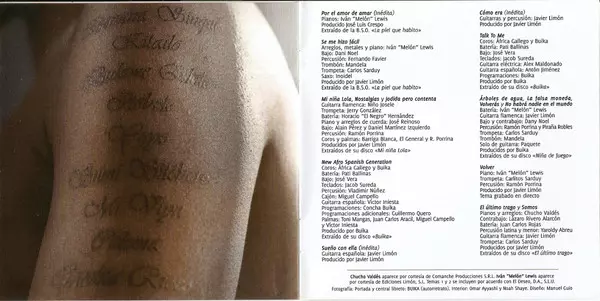 Por el amor de amar (inédita)
Pianos: Iván "Melón" Lewis
Producido José Luis Crespo
Extraído de la B.S.O. «La piel que habito»
Se me hizo fácil
Arreglos, metales y piano: Iván "Melón" Lewis
Bajo: Dani Noel
Percusión: Fernando Favier
Trombón: Mandela
Trompeta: Carlos Sarduy
Saxo: Inoidel
Producido por Javier Limón
Extraído de la B.S.O. «La piel que habito»
Mi niña Lola, Nostalgias y Jodida pero contenta
Guitarra flamenca: Niño Josele
Trompeta: Jerry González
Batería: Horacio "El Negro" Hernández
Piano y arreglos de cuerda: José Reinoso
Bajo: Alain Pérez y Daniel Martínez Izquierdo
Percusión: Ramón Porrina
Coros y palmas: Barriga Blanca, El General y R. Porrina
Producidos por Javier Limón
Extraídos de su disco «Mi niña Lola»
New Afro Spanish Generation
Coros: África Gallego y Buika
Batería: Pati Ballinas
Bajo: José Vera
Teclados: Jacob Sureda
Percusión: Vladimir Núñez
Cajón: Miguel Campello
Guitarra española: Víctor Iniesta
Programaciones: Concha Buika
Programaciones adicionales: Guillermo Quero
Palmas: Toni Mangas, Juan Carlos Aracil, Miguel Campello
y Víctor Iniesta
Producido por Buika
Extraído de su disco «Buika»
Sueño con ella (inédita)
Guitarra española: Javier Limón
Producido por Javier Limón
Cómo era (inédita)
Guitarras y percusión: Javier Limón
Producido por Javier Limón
Talk To Me
Coros: África Gallego y Buika
Batería: Pati Ballinas
Bajo: José Vera
Teclados: Jacob Sureda
Guitarra eléctrica: Alex Maldonado
Guitarra española: Antón Jiménez
Programaciones: Buika
Producido por Buika
Extraído de su disco «Buika»
Árboles de agua, La falsa moneda,
Volverás y No habrá nadie en el mundo
Batería: Iván "Melón" Lewis
Guitarra flamenca: Javier Limón
Bajo y contrabajo: Dany Noel
Percusión: Ramón Porrina y Piraña Robles
Trompeta: Carlos Sarduy
Trombón: Mandela
Solo de guitarra: Paquete
Producidos por Javier Limón
Extraídos de su disco «Niña de Fuego»
Volver
Piano: Iván "Melón" Lewis
Trompeta: Carlitos Sarduy
Percusión: Ramón Porrina
Producido por Javier Limón
Tema grabado en directo
El último trago y Somos
Pianos y arreglos: Chucho Valdés
Contrabajo: Lázaro Rivero Alarcón
Batería: Juan Carlos Rojas
Percusión latina y menor: Yaroldy Abreu
Guitarra flamenca: Javier Limón
Trompeta: Carlos Sarduy
Producidos por Javier Limón
Extraídos de su disco «El último trago»
Chucho Valdés aparece por cortesía de Comanche Producciones S.R.L. Iván "Melón" Lewis aparece
por cortesía de Ediciones Limón, S.L. Temas 1 y 2 se incluyen por acuerdo con El Deseo, D.A., S.L.U.
Fotografía: Portada y central librero: BUIKA (autorretrato). Interior: Omar Ayyashi y Noah Shaye. Diseño: Manuel Guío